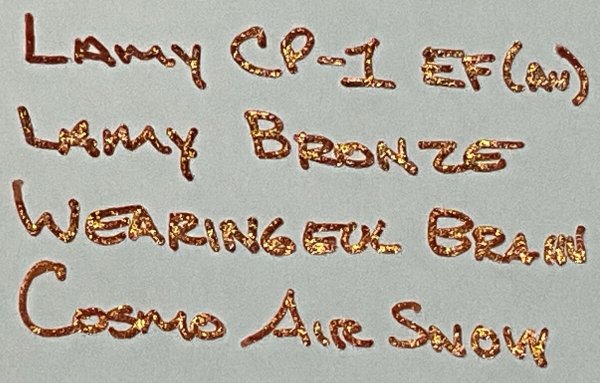 Lamy CP-1 EF (Au)
Lamy Bronze
Wearingeul Brain
Cosmo Air Snow